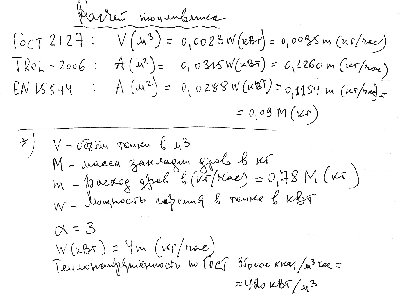 Расчет топливника
ГОСТ 2127: V(м³) = 0,0023 W(кВт) = 0,0095 m (кг/час)
TROL-2006: A(м²) = 0,0315 W(кВт) = 0,1260 m (кг/час)
EN 15544: A(м²) = 0,0288 W(кВт) = 0,1154 m (кг/час) =
= 0,09 M (кг)
*) V - объём топки в м3
M - масса закладки дров в кг
m - расход дров в (кг/час) = 0,78 M (кг)
W - мощность горения в топке в кВт
α = 3
W(кВт) = 4m (кг/час)
Теплонапряжённость по ГОСТ ккал/м³час =
= 420 кВт/м³